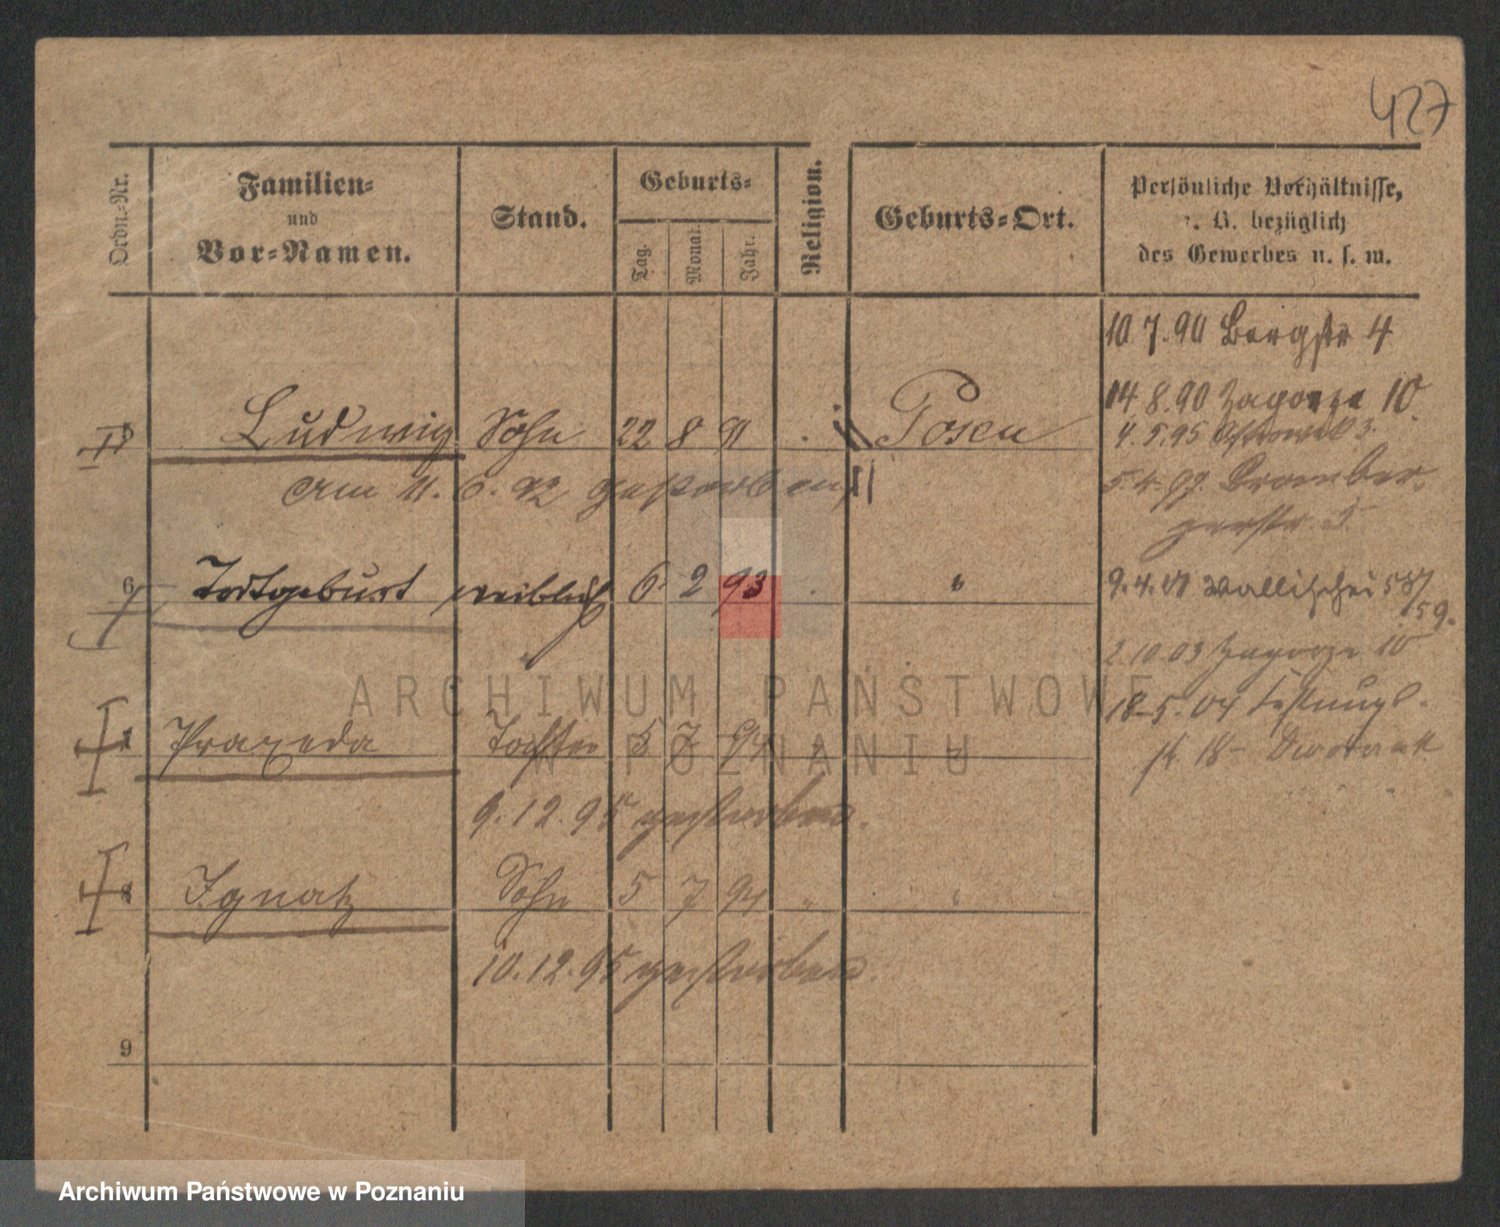 427
Ordn.=Nr.
Familien=
und
Vor=Namen.
Stand.
Geburts=
Tag.
Monat.
Jahr.
Religion.
Geburts=Ort.
Persönliche Verhältnisse,
z. B. bezüglich
des Gewerbes u. s. w.
10.7.90 Bergstr 4
14.8.90 Zagorze 10
Ludwig Sohn 22 8 91 Posen
4.5.95 Ostrowek 3
am 11.6.92 gestorben
5.4.99. Bromber-
gerstr 5
6 Todtgeburt weiblich 6. 2 93 "
9.4.01 Wallischei 58/
59.
2.10.03 Zagorze 10
18.5.04 Festungs-
Praxeda Tochter 5 7 94 " "
18 Dwora
9.12.95 gestorben.
8 Ignatz Sohn 5 7 94 " "
10.12.95 gestorben.
9
ARCHIWUM PAŃSTWOWE
W POZNANIU
Archiwum Państwowe w Poznaniu